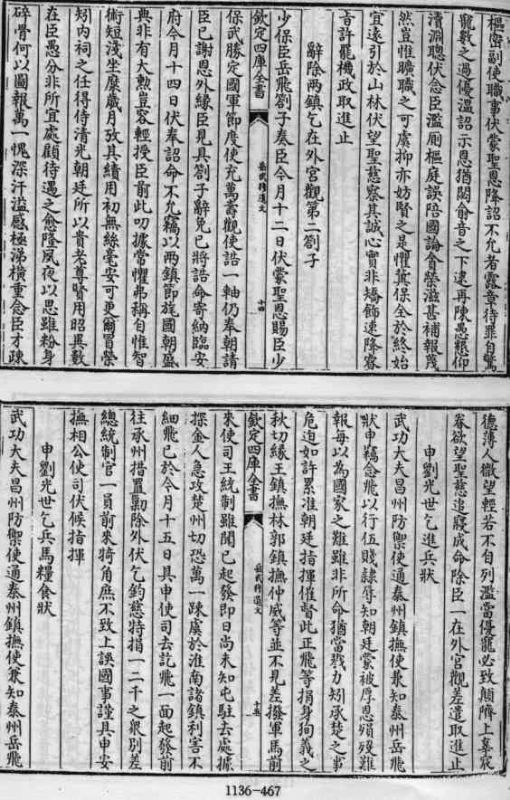 樞密副使職事伏蒙聖恩降詔不允者露章待罪自驚
寵數之過優溫詔示恩猶閟俞音之下逮再陳愚懇仰
瀆淵聰伏念臣濫厠樞庭誤陪國論貪榮滋甚補報蔑
然豈惟曠職之可虞抑亦妨賢之是懼冀保全於終始
宜遠引於山林伏望聖慈察其誠心實非矯飾速降睿
旨許罷機政取進止
辭除兩鎮乞在外宮觀第二劄子
少保臣岳飛劄子奏臣今月十二日伏蒙聖恩賜臣少
欽定四庫全書
岳武穆遺文
十四
保武勝定國軍節度使充萬壽觀使誥一軸仍奉朝請
臣已謝恩外緣臣見具劄子辭免已將誥命寄納臨安
府今月十四日伏奉詔命不允竊以兩鎮節旄國朝盛
典非有大勲豈容輕授臣前此叨據常懼弗稱自惟智
術短淺坐縻歲月攷其績用初無絲毫安可更爾冒榮
矧内祠之任得侍清光朝廷所以貴老尊賢用昭異數
在臣愚分非所宜處顧待遇之愈隆夙夜以思雖粉身
碎骨何以圖報萬一愧深汗溢感極涕横重念臣才疎
德薄人微望輕若不自列濫當優寵必致顛隮上辜宸
眷欲望聖慈追寢成命除臣一在外宮觀差遣取進止
申劉光世乞進兵狀
武功大夫昌州防禦使通泰州鎮撫使兼知泰州岳飛
狀申竊念飛以行伍賤隷辱知朝廷蒙被厚恩殞殁難
報每以為國家之難雖非所命猶當戮力矧承楚之事
危迫如許累准朝廷指揮催督此正飛等捐身狥義之
秋切緣王鎮撫林郭鎮撫仲威等並不見差撥軍馬前
欽定四庫全書
岳武穆遺文
十五
來使司王統制雖聞已起發即日尚未知屯駐去處據
探金人急攻楚州切恐萬一踈虞於淮南諸鎮利害不
細飛已於今月十五日具申使司去訖飛一面起發前
往承州措置勦除外伏乞鈞慈特捐一二千之衆别差
總統制官一員前來犄角庶不致上誤國事謹具申安
撫相公使司伏候指揮
申劉光世乞兵馬糧食狀
武功大夫昌州防禦使通泰州鎮撫使兼知泰州岳飛
1136-467